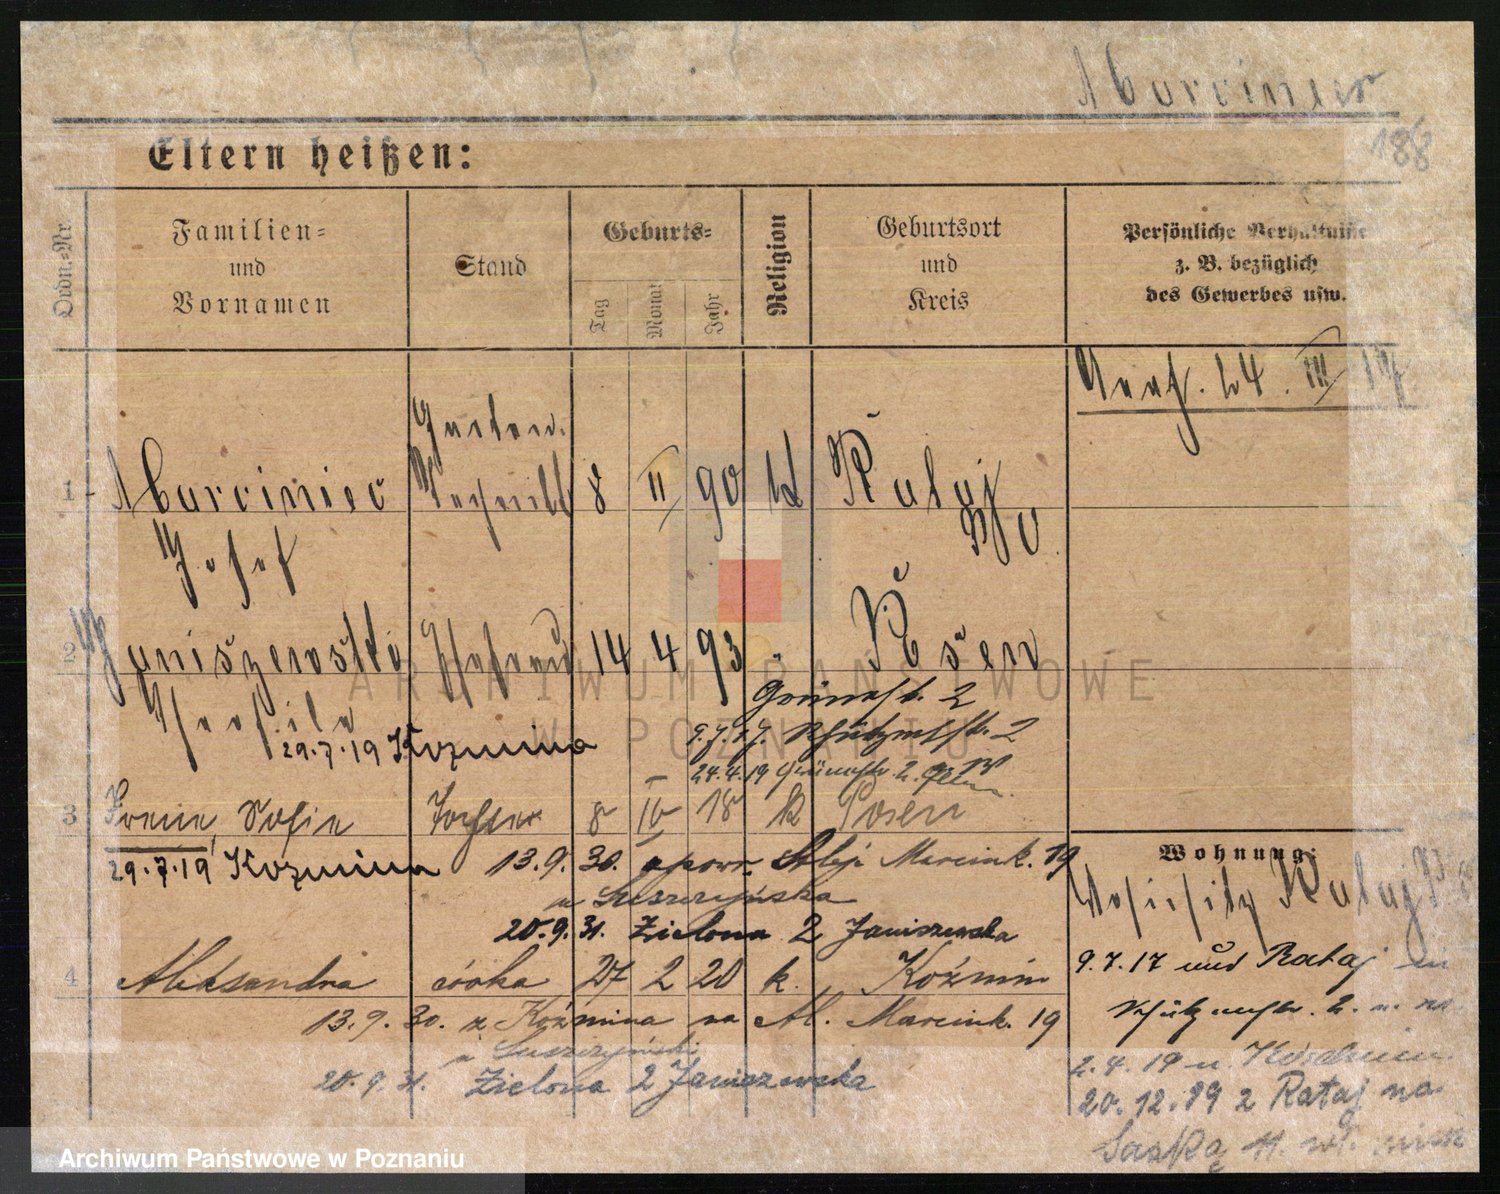 Marciniec
188
Eltern heißen:
Ordn.-Nr
Familien-
und
Vornamen
Stand
Geburts-
Tag
Monat
Jahr
Religion
Geburtsort
und
Kreis
Persönliche Verhältnisse
z. B. bezüglich
des Gewerbes usw.
24. III 17
1 Marciniec 8 II 90 k Rataj
Josef
2 Janiszewska 14 4 93 " Posen
Theofila Grünestr. 2
29.7.19 Kozmina 9.7.17. Schützenstr. 2
24.4.19 Grünestr. 2
3 Irene, Sofie Tochter 8 IV 18 k Posen
29.7.19 Kozmina 13.9.30. spowr. Al. Marcink. 19
u Suszczyńska
20.9.31. Zielona 2 Janiszewska
4 Aleksandra córka 27 2 20 k. Koźmin
13.9.30. z Koźmina na Al. Marcink. 19
u Suszczyński
20.9.31. Zielona 2 Janiszewska
Wohnung:
Rataj
9.7.17 und Rataj
Schützenstr. 2.
2.4.19
20.12.19 z Rataj na
Saską 11.
ARCHIWUM PAŃSTWOWE
W POZNANIU
Archiwum Państwowe w Poznaniu